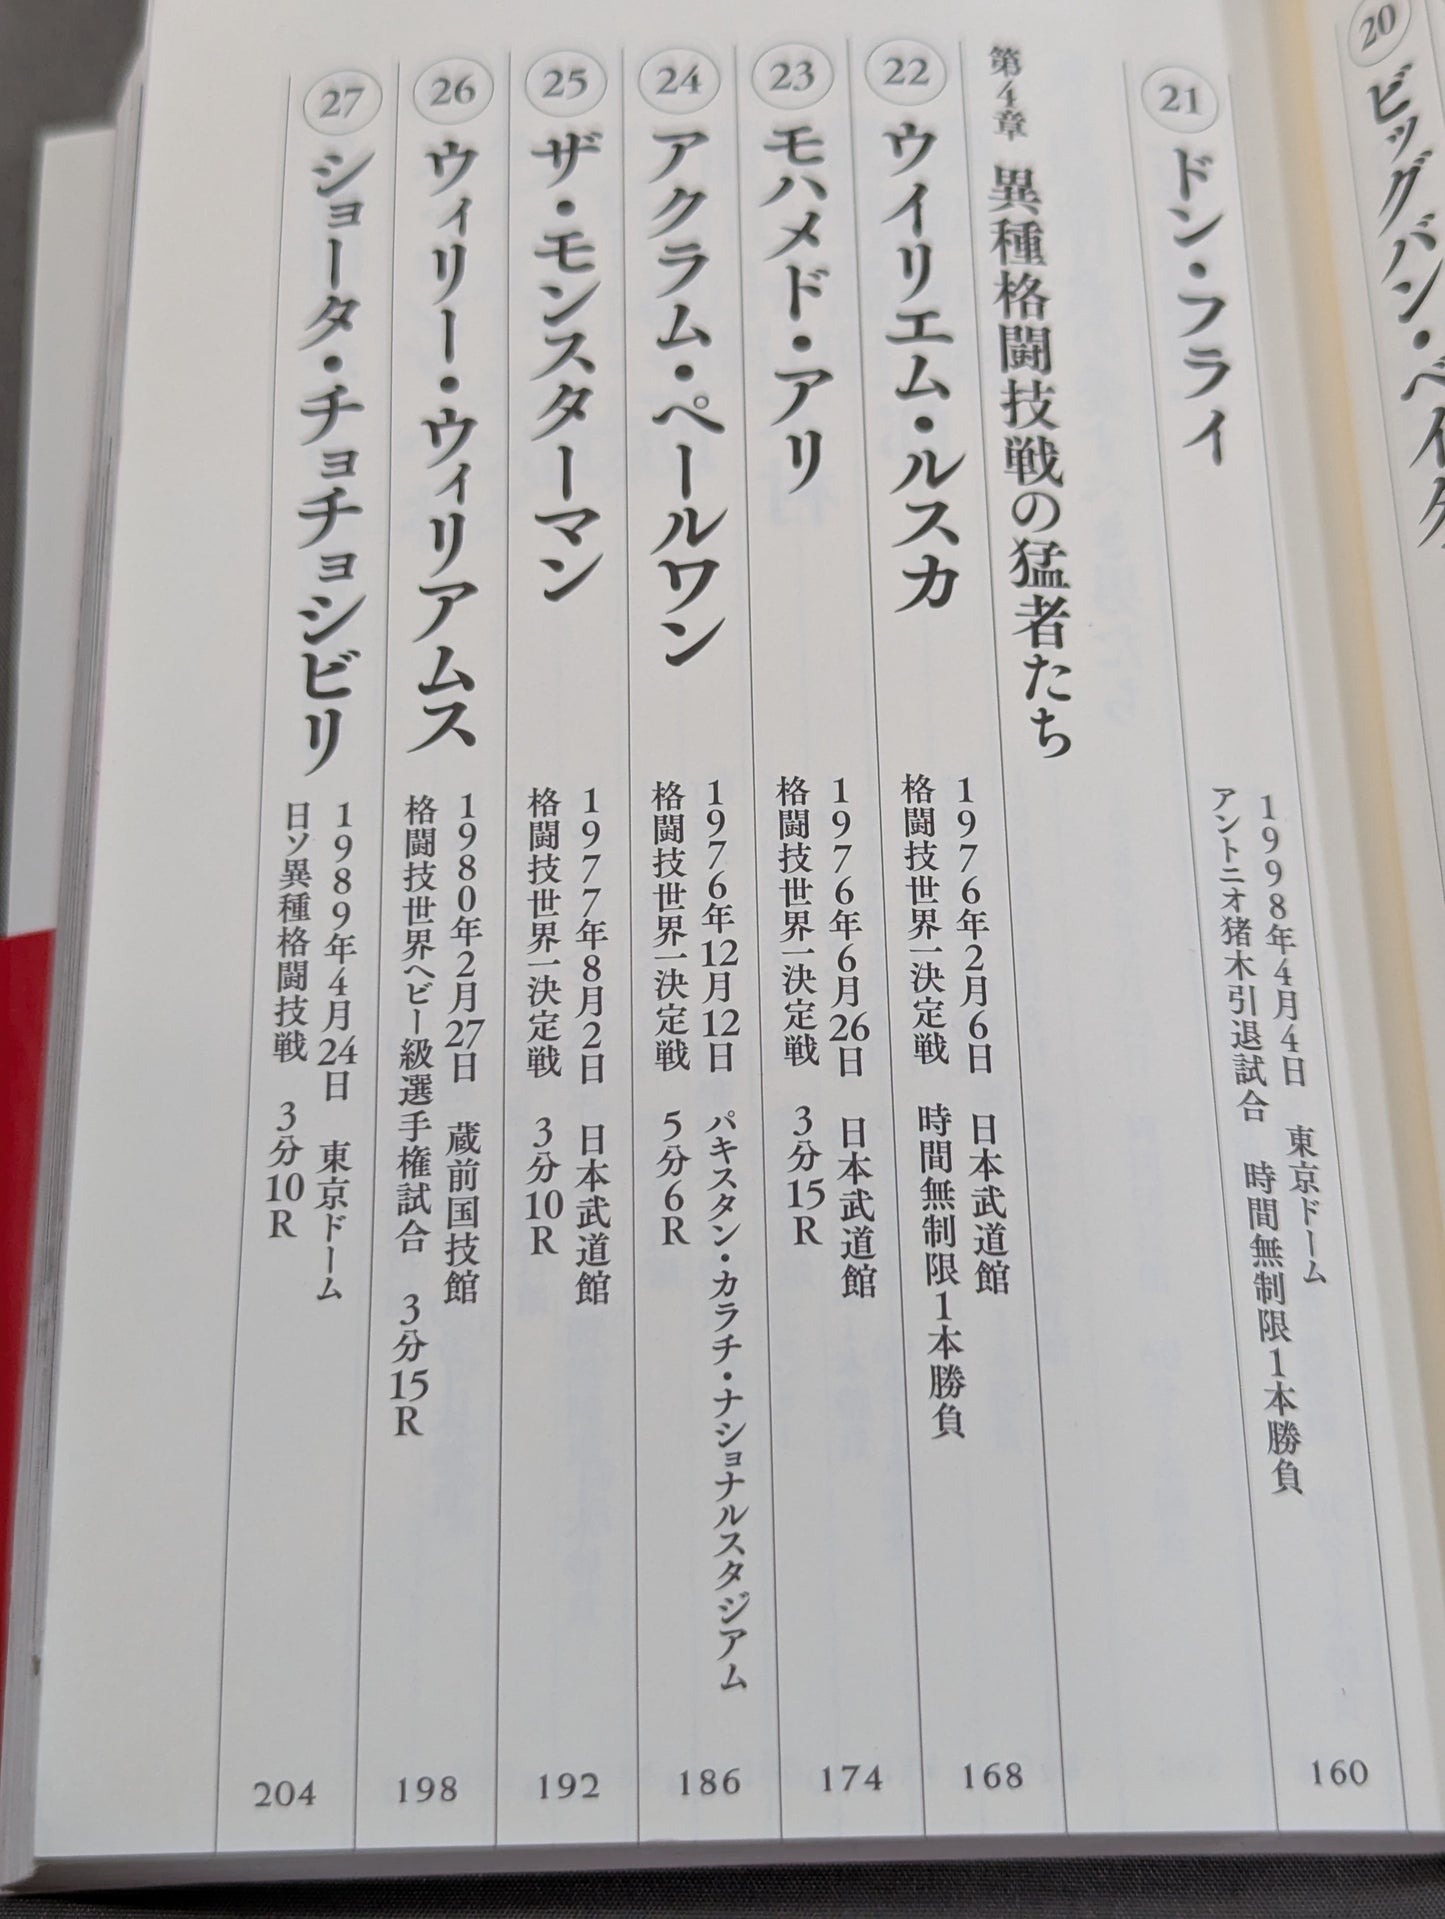 20 ビッグバン・ベイダ
21 ドン・フライ
1998年4月4日 東京ドーム
アントニオ猪木引退試合 時間無制限1本勝負
160
第4章 異種格闘技戦の猛者たち
22 ウイリエム・ルスカ
1976年2月6日 日本武道館
格闘技世界一決定戦 時間無制限1本勝負
168
23 モハメド・アリ
1976年6月26日 日本武道館
格闘技世界一決定戦 3分15R
174
24 アクラム・ペールワン
1976年12月12日 パキスタン・カラチ・ナショナルスタジアム
格闘技世界一決定戦 5分6R
186
25 ザ・モンスターマン
1977年8月2日 日本武道館
格闘技世界一決定戦 3分10R
192
26 ウィリー・ウィリアムス
1980年2月27日 蔵前国技館
格闘技世界ヘビー級選手権試合 3分15R
198
27 ショータ・チョチョシビリ
1989年4月24日 東京ドーム
日ソ異種格闘技戦 3分10R
204